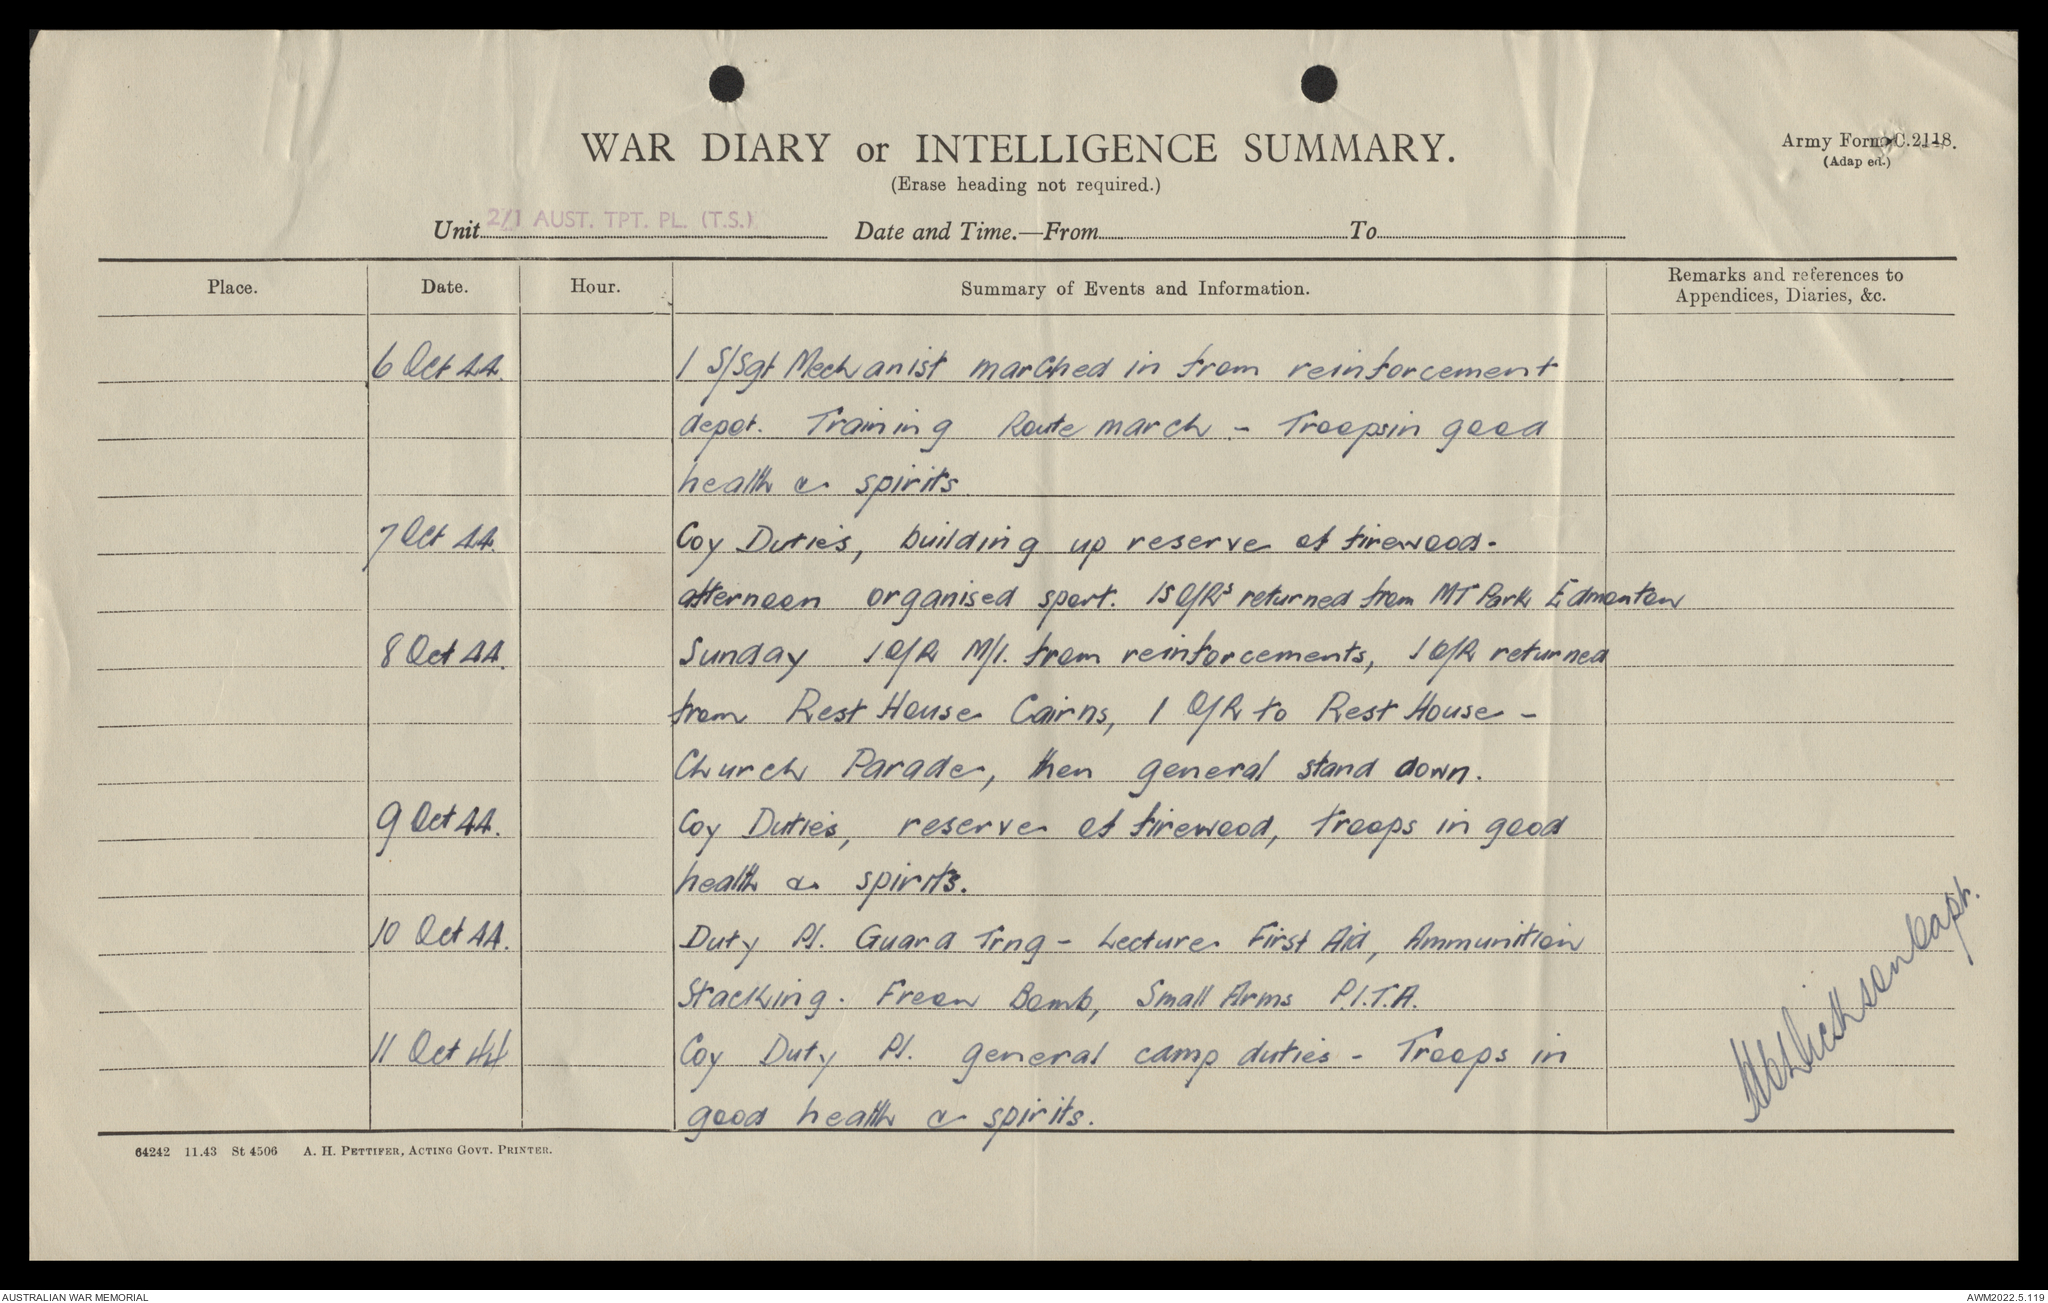 WAR DIARY or INTELLIGENCE SUMMARY.
Army Form C.2118.
(Adap ed.)
(Erase heading not required.)
Unit 2/1 AUST. TPT. PL. (T.S.) Date and Time.—From To
Place. Date. Hour. Summary of Events and Information. Remarks and references to
Appendices, Diaries, &c.
6 Oct 44. 1 S/Sgt Mechanist marched in from reinforcement
depot. Training Route march - Troops in good
health & spirits
7 Oct 44. Coy Duties, building up reserve of firewood -
afternoon organised sport. 15 O/Rs returned from MT Park Edmonton
8 Oct 44. Sunday 1 O/R M/I. from reinforcements, 1 O/R returned
from Rest House Cairns, 1 O/R to Rest House -
Church Parade, then general stand down.
9 Oct 44. Coy Duties, reserve of firewood, troops in good
health & spirits.
10 Oct 44. Duty Pl. Guard Trng - Lecture First Aid, Ammunition
Stacking. Freon Bomb, Small Arms P.I.T.A.
11 Oct 44 Coy Duty Pl. general camp duties - Troops in
good health & spirits.
Capt.
64242 11.43 St 4506 A. H. PETTIFER, ACTING GOVT. PRINTER.
AUSTRALIAN WAR MEMORIAL
AWM2022.5.119